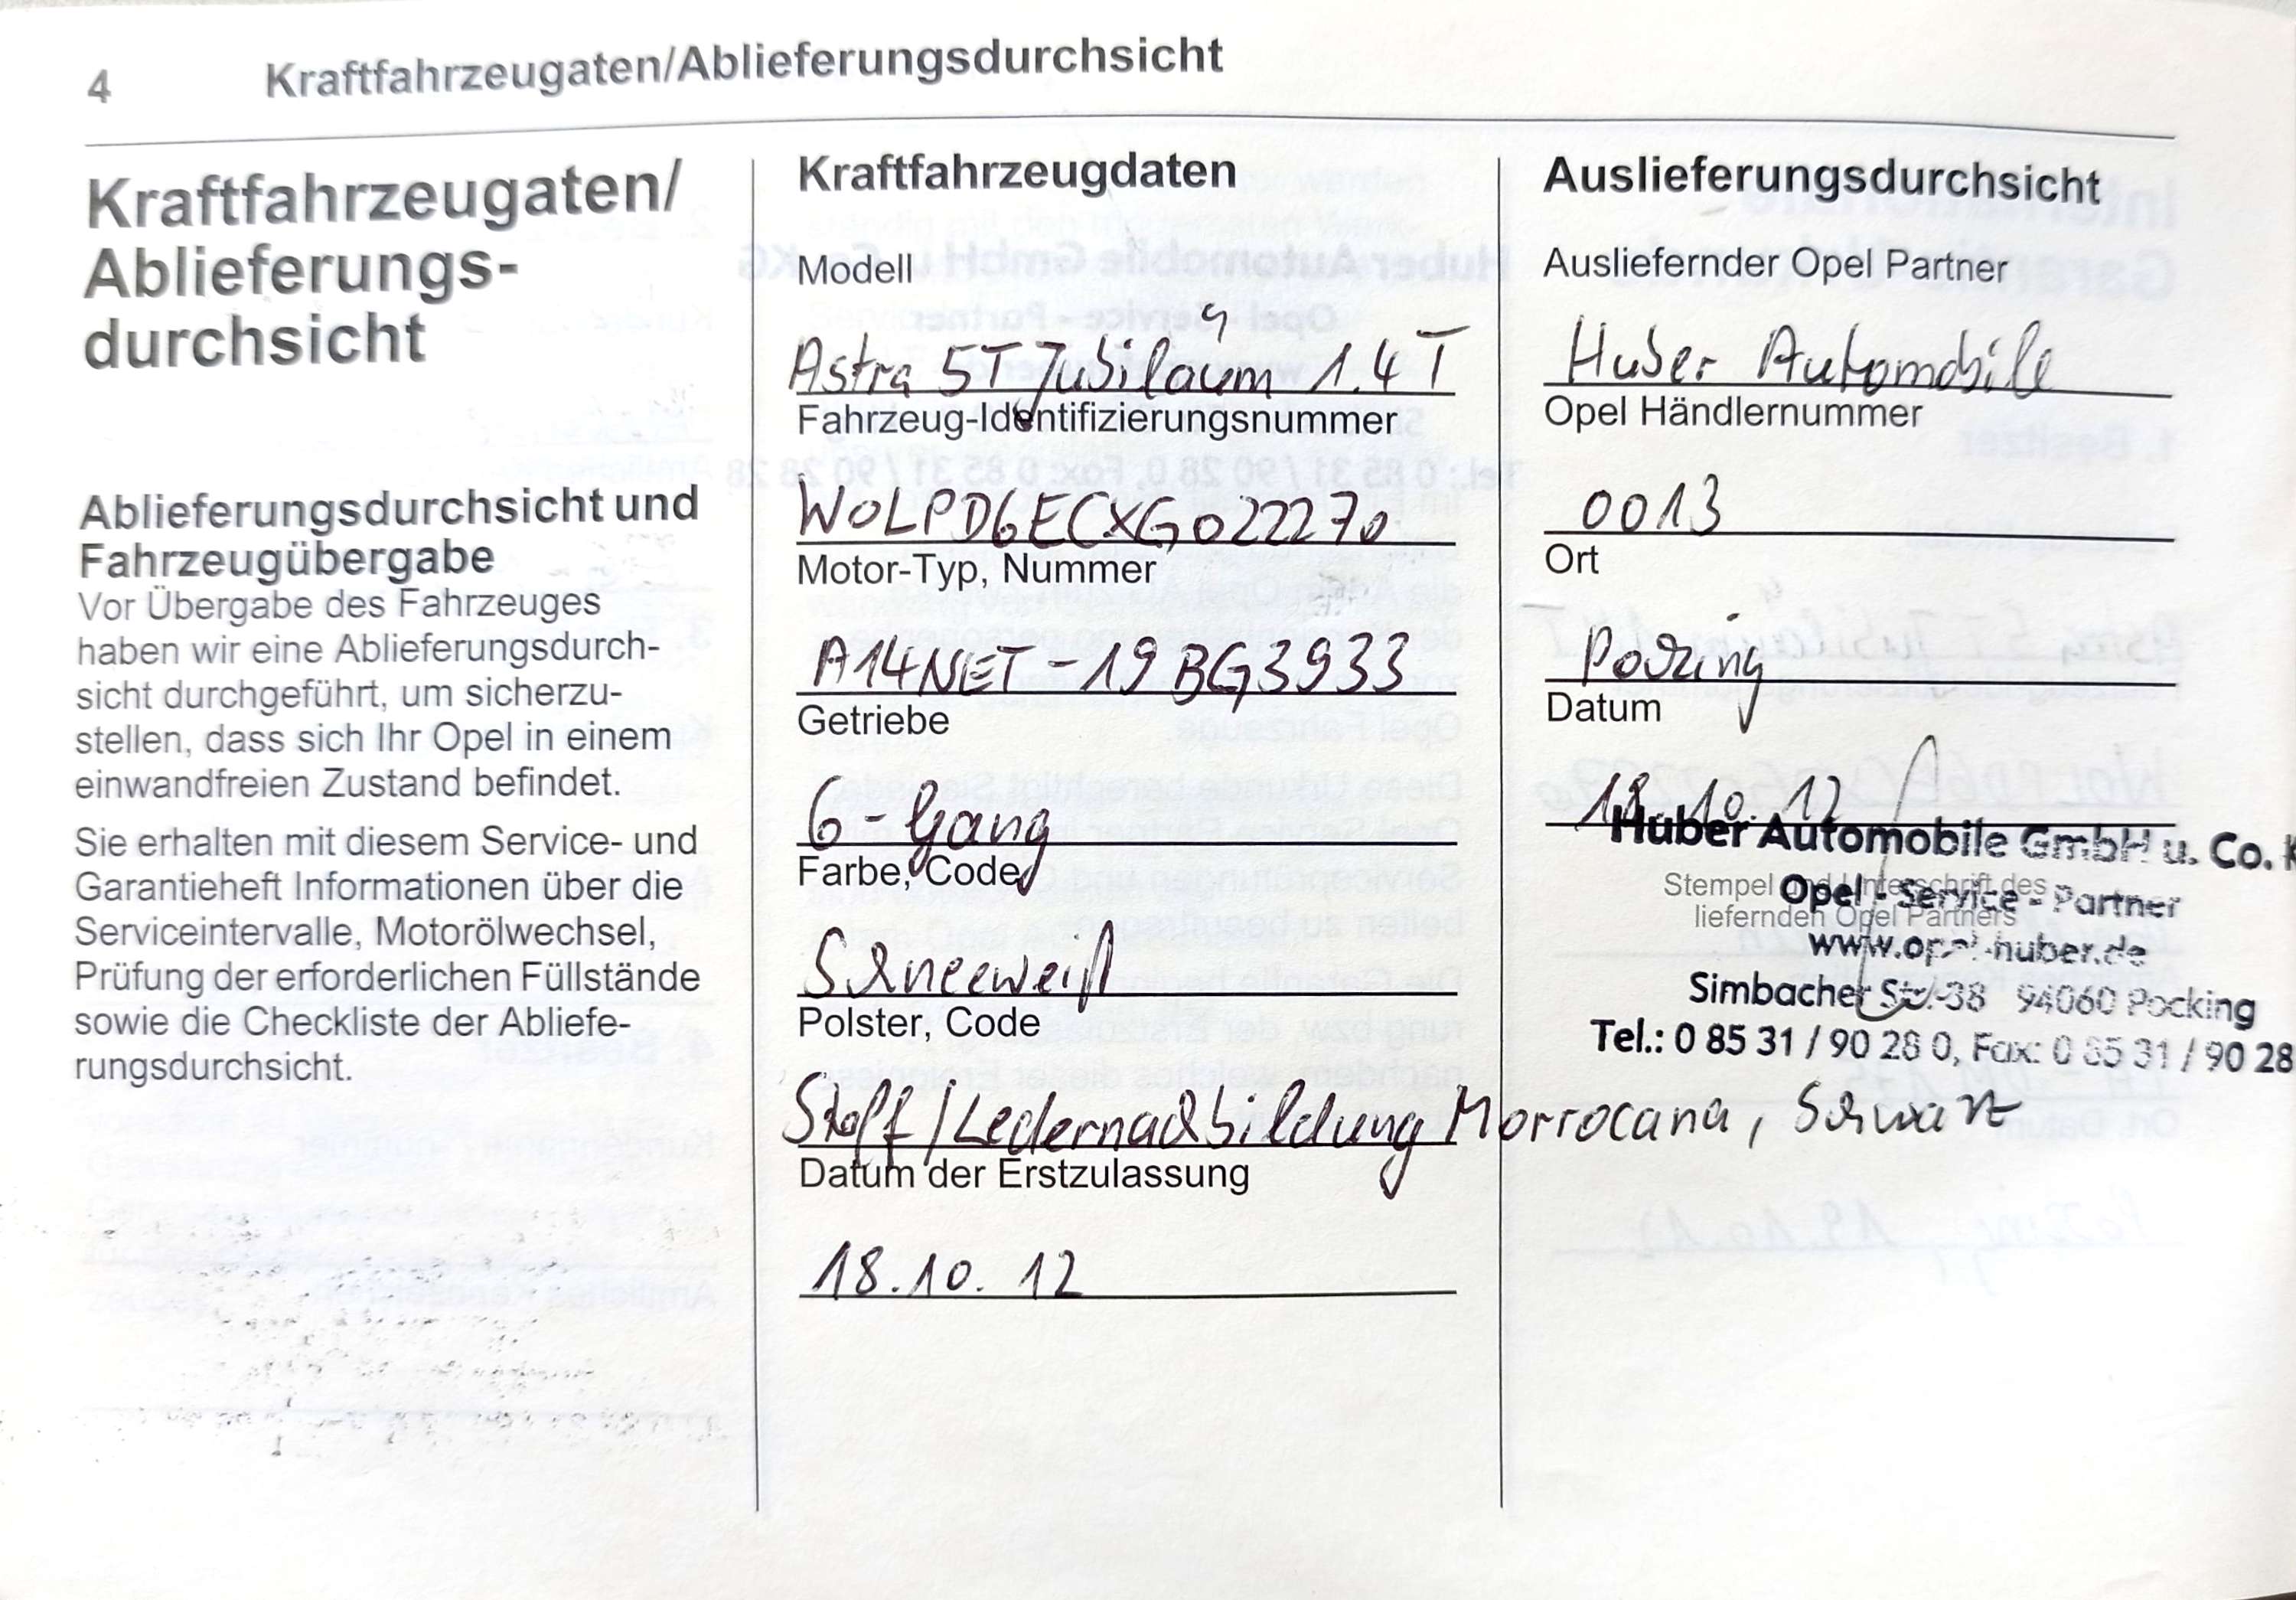 4 Kraftfahrzeugaten/Ablieferungsdurchsicht
Kraftfahrzeugaten/
Ablieferungs-
durchsicht
Ablieferungsdurchsicht und
Fahrzeugübergabe
Vor Übergabe des Fahrzeuges
haben wir eine Ablieferungsdurch-
sicht durchgeführt, um sicherzu-
stellen, dass sich Ihr Opel in einem
einwandfreien Zustand befindet.
Sie erhalten mit diesem Service- und
Garantieheft Informationen über die
Serviceintervalle, Motorölwechsel,
Prüfung der erforderlichen Füllstände
sowie die Checkliste der Abliefe-
rungsdurchsicht.
Kraftfahrzeugdaten
Modell
Astra 5T Jubiläum 1.4 T
Fahrzeug-Identifizierungsnummer
W0LPD6ECXG022270
Motor-Typ, Nummer
A14NET - 19BG3933
Getriebe
6-Gang
Farbe, Code
Schneeweiß
Polster, Code
Stoff/Ledernachbildung Morrocana, Schwarz
Datum der Erstzulassung
18.10.12
Auslieferungsdurchsicht
Ausliefernder Opel Partner
Huber Automobile
Opel Händlernummer
0013
Ort
Pocking
Datum
18.10.12
Huber Automobile GmbH u. Co.
Stempel und Unterschrift des
liefernden Opel Partners
Opel - Service - Partner
www.opel-huber.de
Simbacher Str. 38 94060 Pocking
Tel.: 0 85 31 / 90 28 0, Fax: 0 85 31 / 90 28